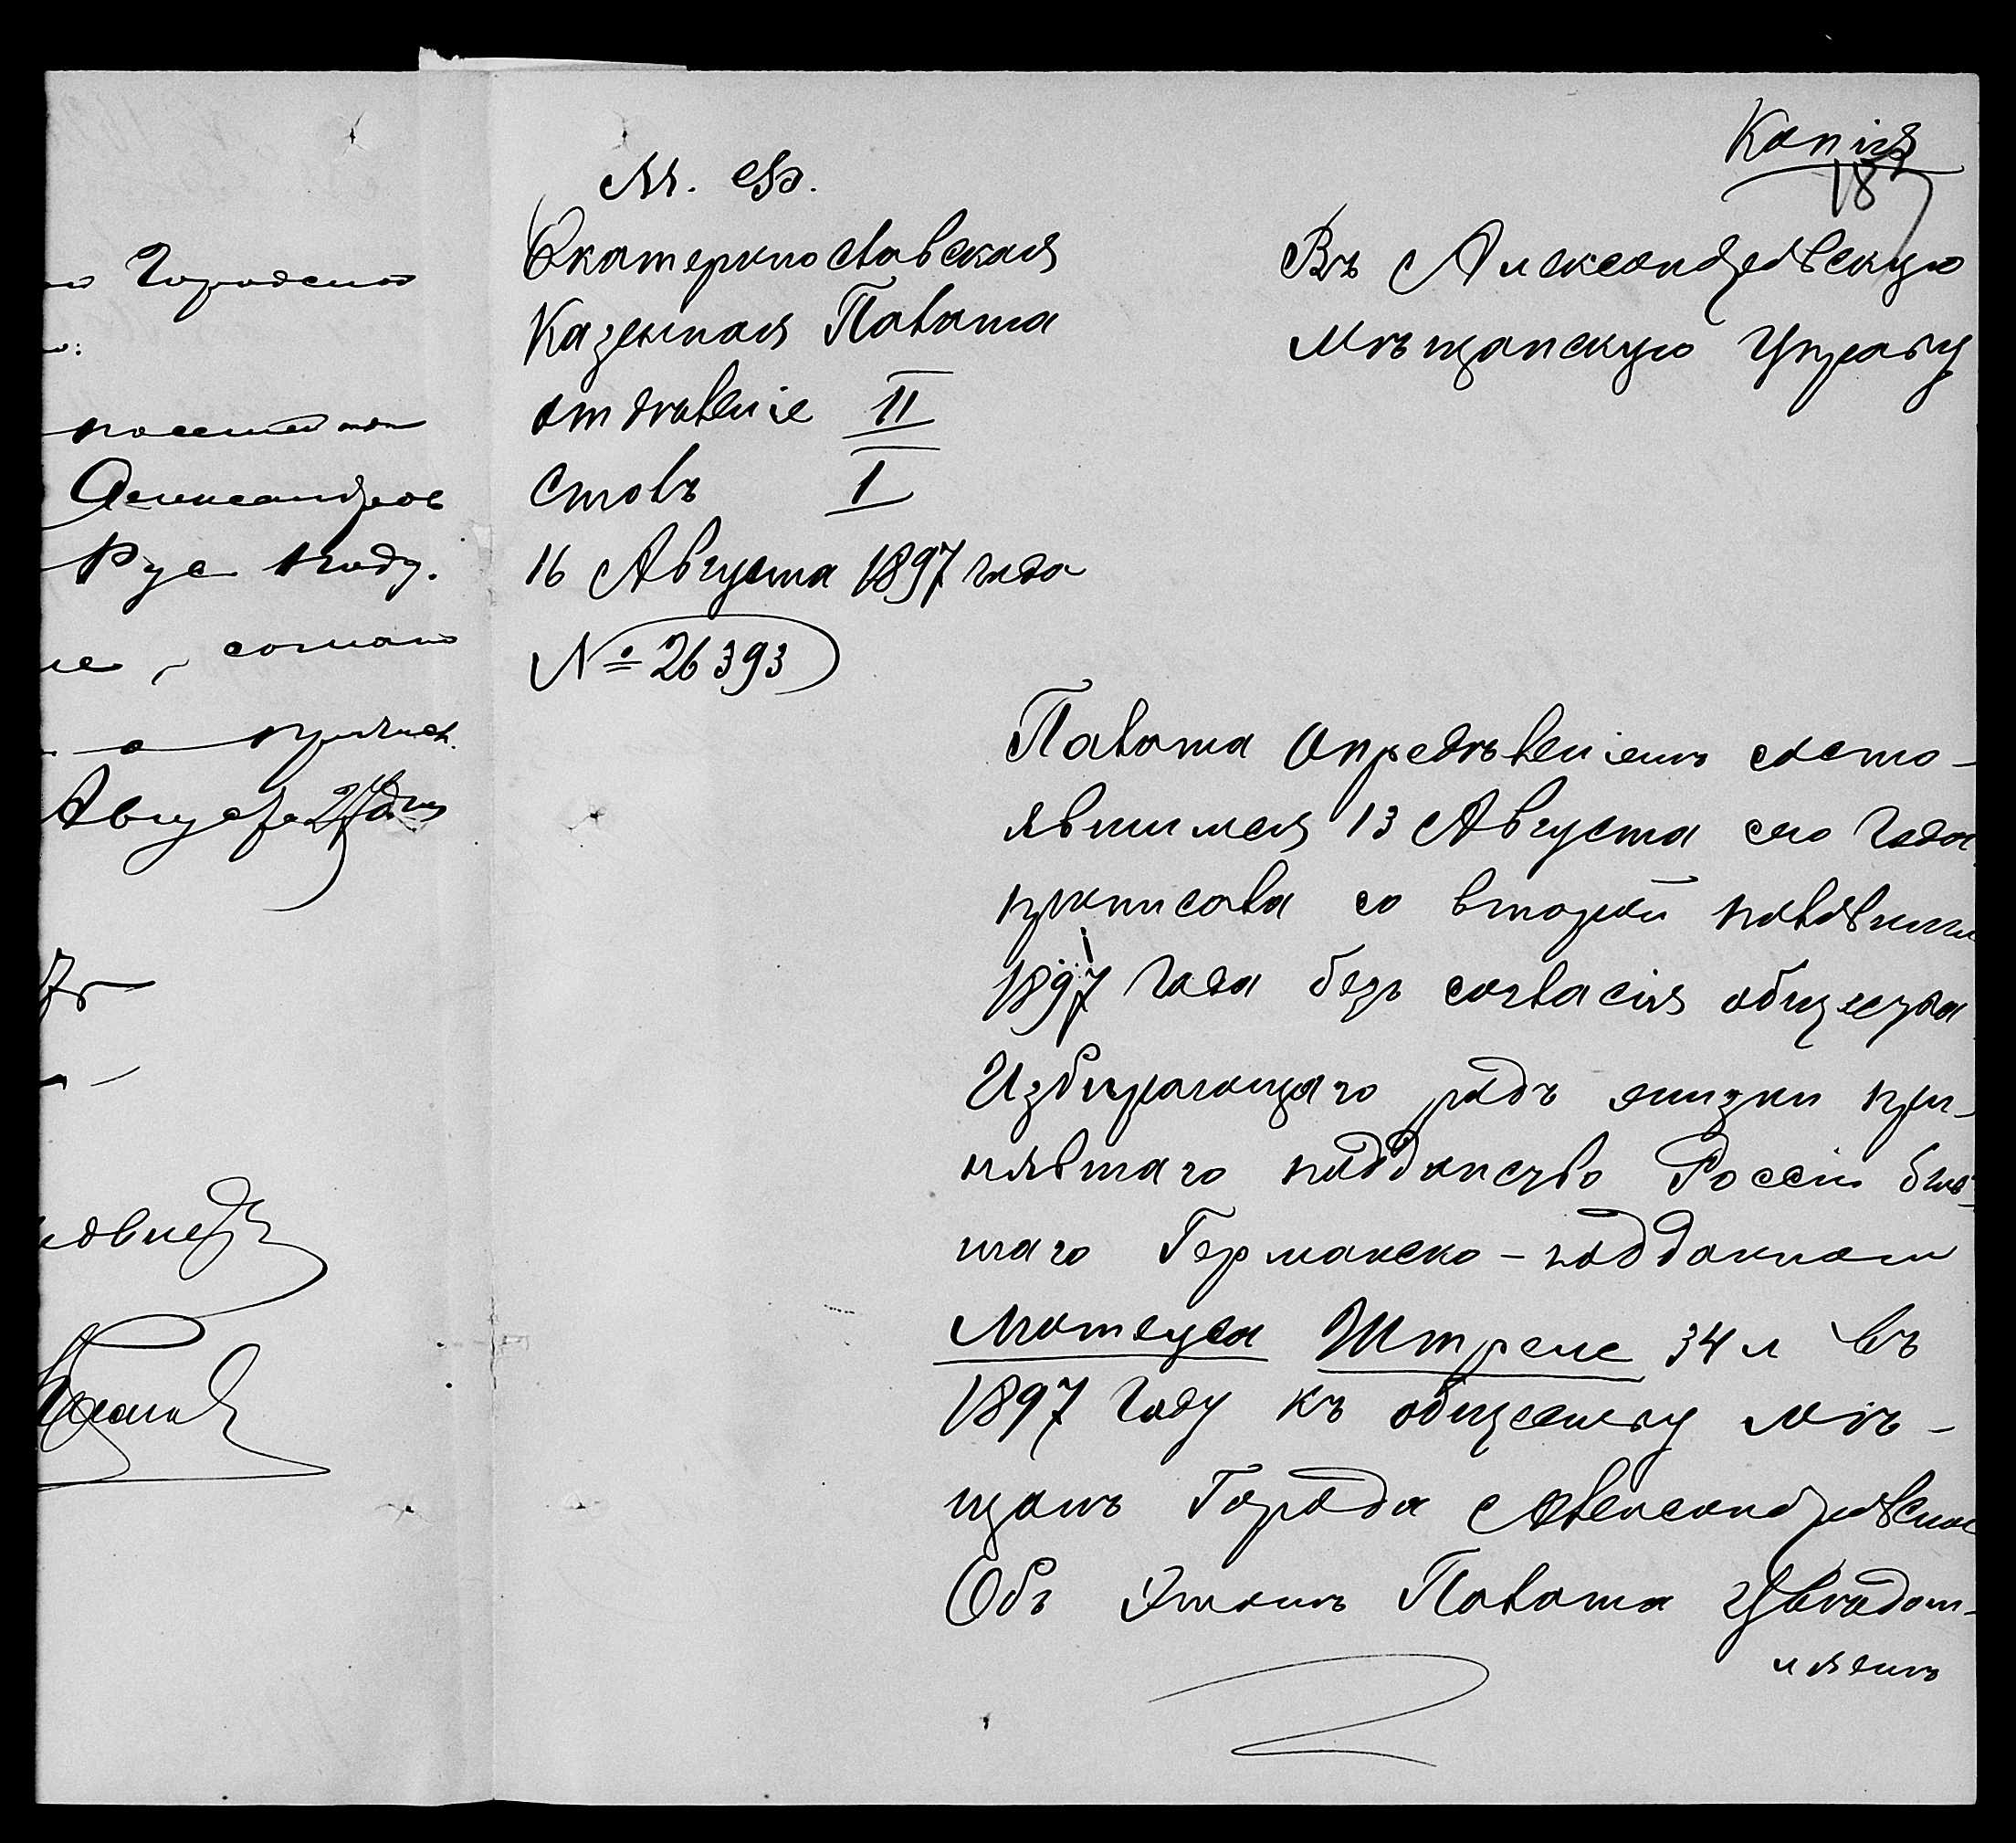 Городской
Александров
Рус подд.
Августа 27 дня
Копія
18
М. Ф.
Екатеринославская
Казенная Палата
отдѣленіе II
столъ I
16 Августа 1897 года
№ 26393
Въ Александровскую
Мѣщанскую Управу
Палата опредѣленіемъ состо-
явшимся 13 Августа сего года
приписала со второй половины
1897 года безъ согласія общества
Избирающаго родъ жизни при-
нявшаго подданство Россіи быв-
шаго Германско-подданнаго
Матеуса Штреле 34 л въ
1897 году къ обществу мѣ-
щанъ Города Александровска
Объ этомъ Палата Увѣдом-
ляетъ